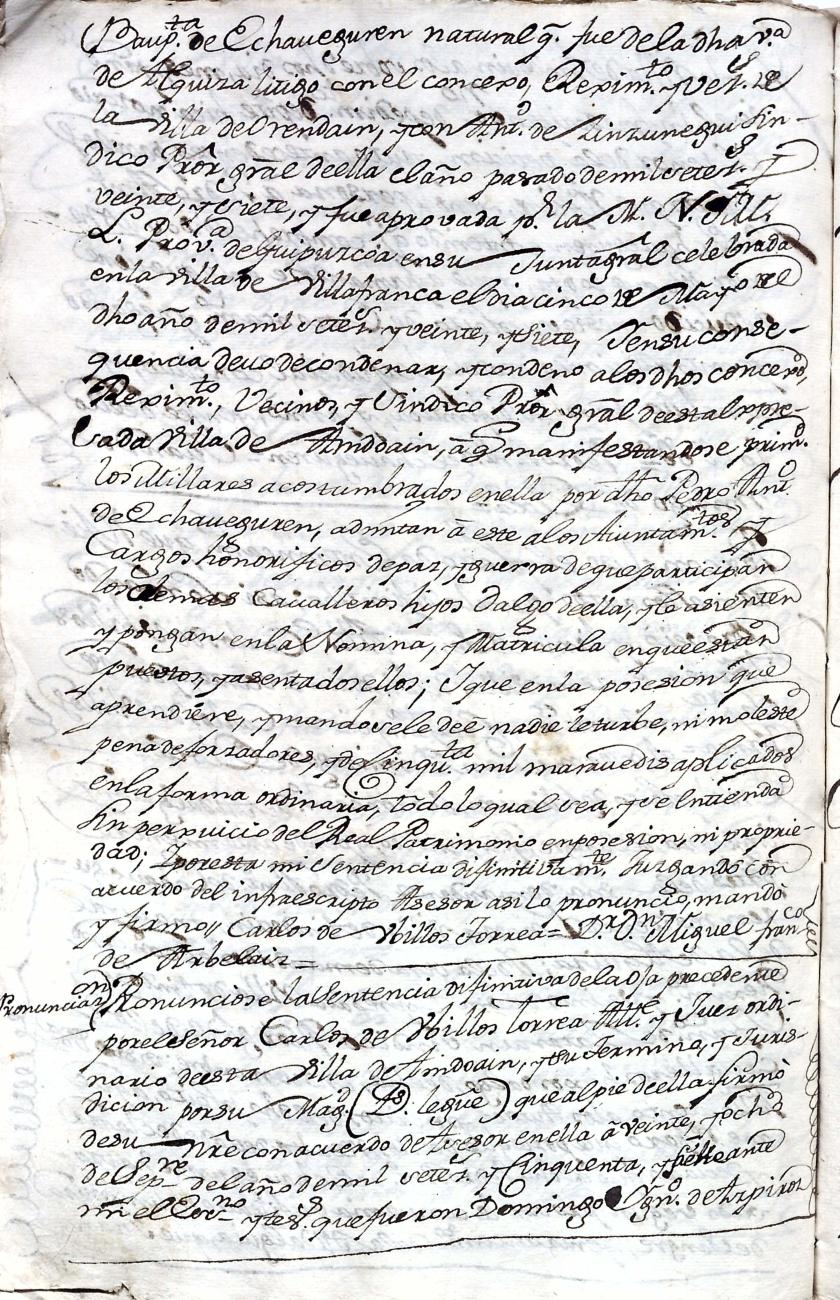 Baup.ta de Echaueguren natural q. fue de la dha v.a
de Alquiza litigo con el concexo, Reximto. y vez.s de
la villa de Orendain, y con Anto. de Zinzunegui Sin-
dico Pror gral de ella el año pasado de mil setez.s y
veinte, y siete, y fue aprovada pr. la M. N. y M.
L. Prov.a de Guipuzcoa en su Junta gral celebrada
en la villa de Villafranca el dia cinco de Mayo de
dho año de mil setez.s y veinte, y siete, Y en su conse-
quencia devo de condenar, y condeno a los dhos concexo,
Reximto., Vecinos, y Sindico Pror gral de esta expre-
sada villa de Amddain, â q. manifestandose prim.o
los Millares acostumbrados en ella por dho Pedro Ant.o
de Echaueguren, admitan â este a los Aiuntam.tos y
Cargos honorificos de paz, y guerra de que participan
los demas Cavalleros hijos dalgo de ella, y le asienten
y pongan en la Nomina, y Matricula en que estan
puestos, y asentados ellos; Y que en la posesion que
aprendiere, y mando se le deê nadie le turbe, ni moleste
pena de forzadores, y de Cinqu.ta mil maravedis aplicados
en la forma ordinaria, todo lo qual sea, y se Entienda
sin perxuicio del Real Patrimonio en posesion, ni proprie-
dad; Y por esta mi Sentencia difinitivam.te Juzgando con
acuerdo del infraescripto Asesor asi lo pronuncio, mando
y firmo // Carlos de Villos Torrea = D.r D.n Miguel Fran.co
de Arbelaiz =
Pronunciaz.on
Pronunciose la Sentencia difinitiva de la oja precedente
por el Señor Carlos de Villos Torrea Alle. y Juez ordi-
nario de esta villa de Amdoain, y su Termino, y Juris-
dicion por su Mag. (D.s le gue) que al pie de ella firmò
de su nre con acuerdo de Asesor en ella â veinte, y ocho
de Sep.re del año de mil setez.s y Cinquenta, y siette ante
mi el Ess.no y tes.s que fueron Domingo Ygn.o de Azpiroz